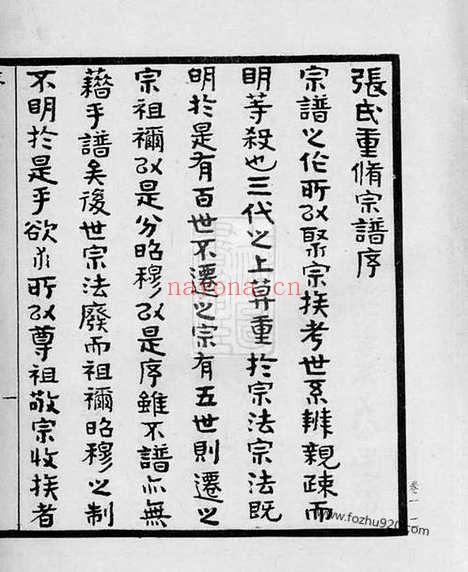 張氏重脩宗譜序
宗譜之作所以聚宗族考世系辨親疎而
明等殺也三代之上莫重於宗法宗法既
明於是有百世不遷之宗有五世則遷之
宗祖禰以是分昭穆以是序雖不譜亦無
藉乎譜矣後世宗法廢而祖禰昭穆之制
不明於是乎欲求所以尊祖敬宗收族者
卷一
nayona.cn
www.fozhu920.com